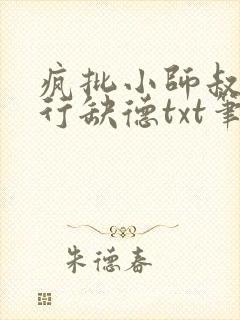 疯批小師叔
行缺德txt筆
朱德春